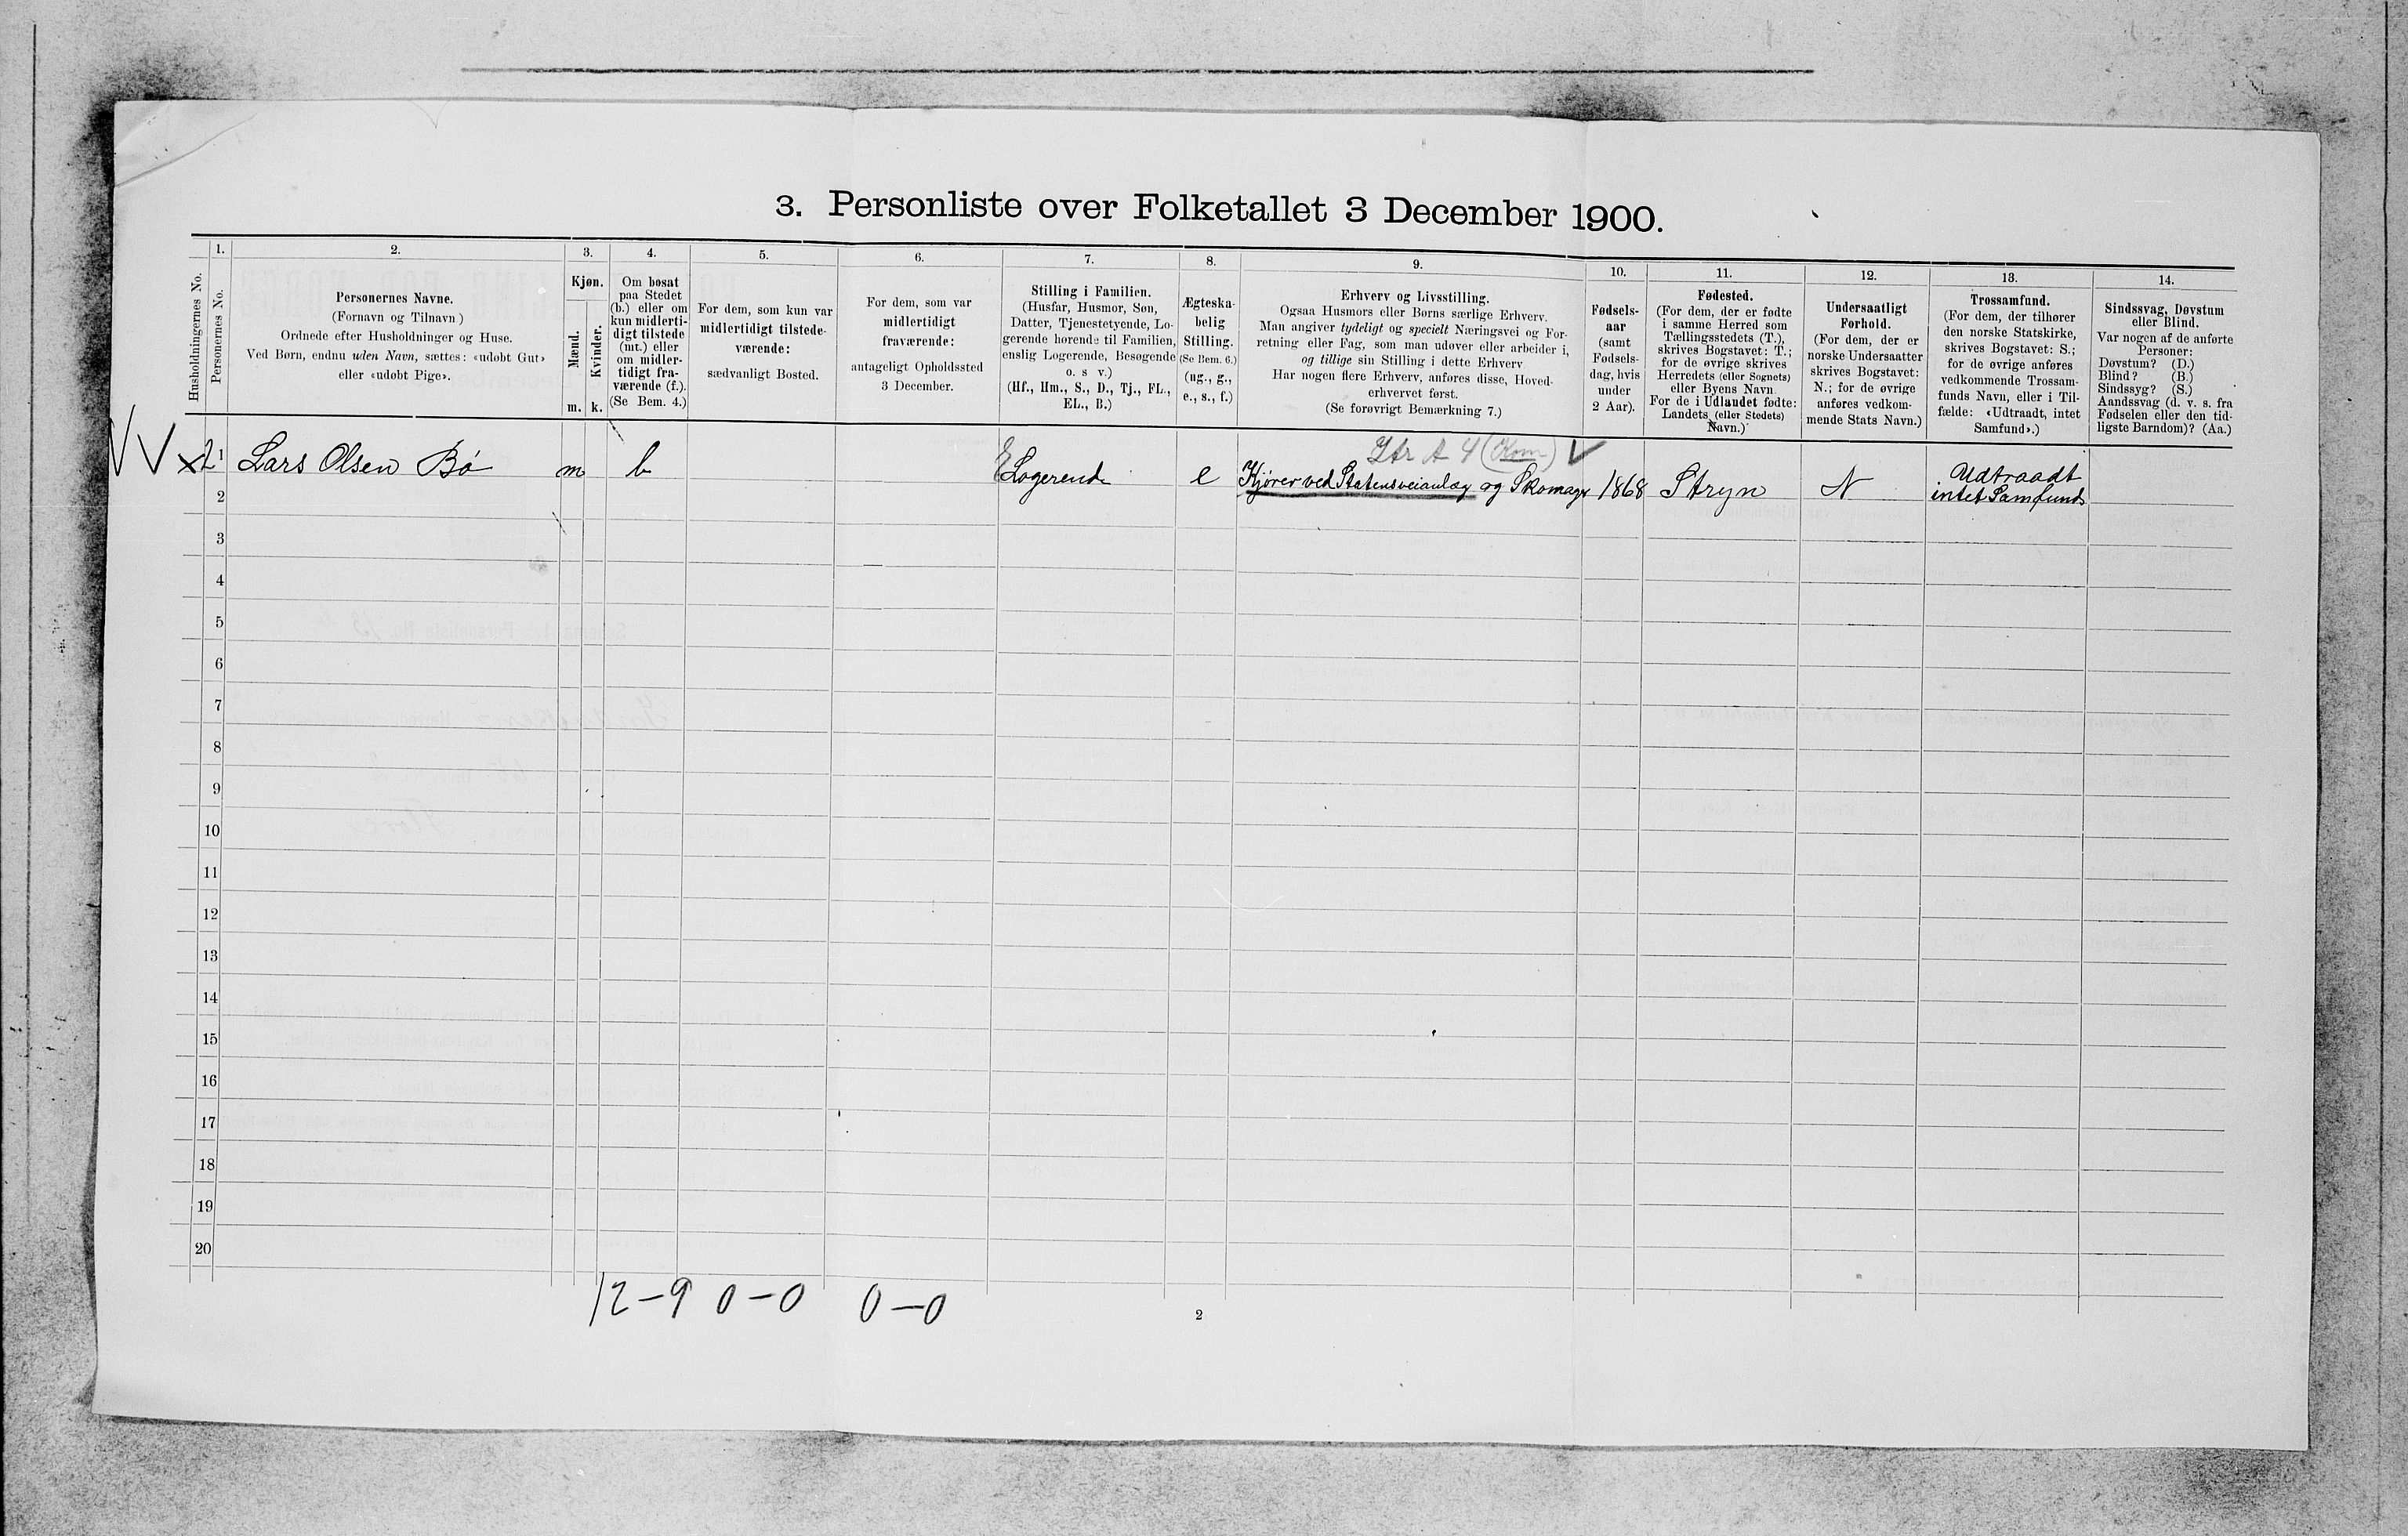 3. Personliste over Folketallet 3 December 1900.
1. 2. 3. 4. 5. 6. 7. 8. 9. 10. 11. 12. 13. 14.
Husholdningernes No.
Personernes No.
Personernes Navne.
(Fornavn og Tilnavn)
Ordnede efter Husholdninger og Huse.
Ved Børn, endnu uden Navn, sættes: «udøbt Gut»
eller «udøbt Pige».
Kjøn.
Mænd.
Kvinder.
m. k.
Om bosat
paa Stedet
(b.) eller om
kun midlerti-
digt tilstede
(mt.) eller
om midler-
tidigt fra-
værende (f.).
(Se Bem. 4.)
For dem, som kun var
midlertidigt tilstede-
værende:
sædvanligt Bosted.
For dem, som var
midlertidigt
fraværende:
antageligt Opholdssted
3 December.
Stilling i Familien.
(Husfar, Husmor, Søn,
Datter, Tjenestetyende, Lo-
gerende hørende til Familien,
enslig Logerende, Besøgende
o. s v.)
(Hf., Hm., S., D., Tj., FL.,
EL., B.)
Ægteska-
belig
Stilling.
(Se Bem. 6.)
(ug., g.,
e., s., f.)
Erhverv og Livsstilling.
Ogsaa Husmors eller Børns særlige Erhverv.
Man angiver tydeligt og specielt Næringsvei og For-
retning eller Fag, som man udøver eller arbeider i,
og tillige sin Stilling i dette Erhverv
Har nogen flere Erhverv, anføres disse, Hoved-
erhvervet først.
(Se forøvrigt Bemærkning 7.)
Fødsels-
aar
(samt
Fødsels-
dag, hvis
under
2 Aar).
Fødested.
(For dem, der er fødte
i samme Herred som
Tællingsstedets (T.),
skrives Bogstavet: T.;
for de øvrige skrives
Herredets (eller Sognets)
eller Byens Navn
For de i Udlandet fødte:
Landets (eller Stedets)
Navn.)
Undersaatligt
Forhold.
(For dem, der er
norske Undersaatter
skrives Bogstavet:
N.; for de øvrige
anføres vedkom-
mende Stats Navn.)
Trossamfund.
(For dem, der tilhører
den norske Statskirke,
skrives Bogstavet: S.;
for de øvrige anføres
vedkommende Trossam-
funds Navn, eller i Til-
fælde: «Udtraadt, intet
Samfund».)
Sindssvag, Døvstum
eller Blind.
Var nogen af de anførte
Personer:
Døvstum? (D.)
Blind? (B.)
Sindssyg? (S.)
Aandssvag (d. v. s. fra
Fødselen eller den tid-
ligste Barndom)? (Aa.)
Str A 4 (Kom)
x 2 1 Lars Olsen Bø m b E Logerende e Kjører ved Statensveianlæg og Skomager 1868 Stryn N Udtraadt
intet Samfund
2
3
4
5
6
7
8
9
10
11
12
13
14
15
16
17
18
19
20
12-9 0-0 0-0
2